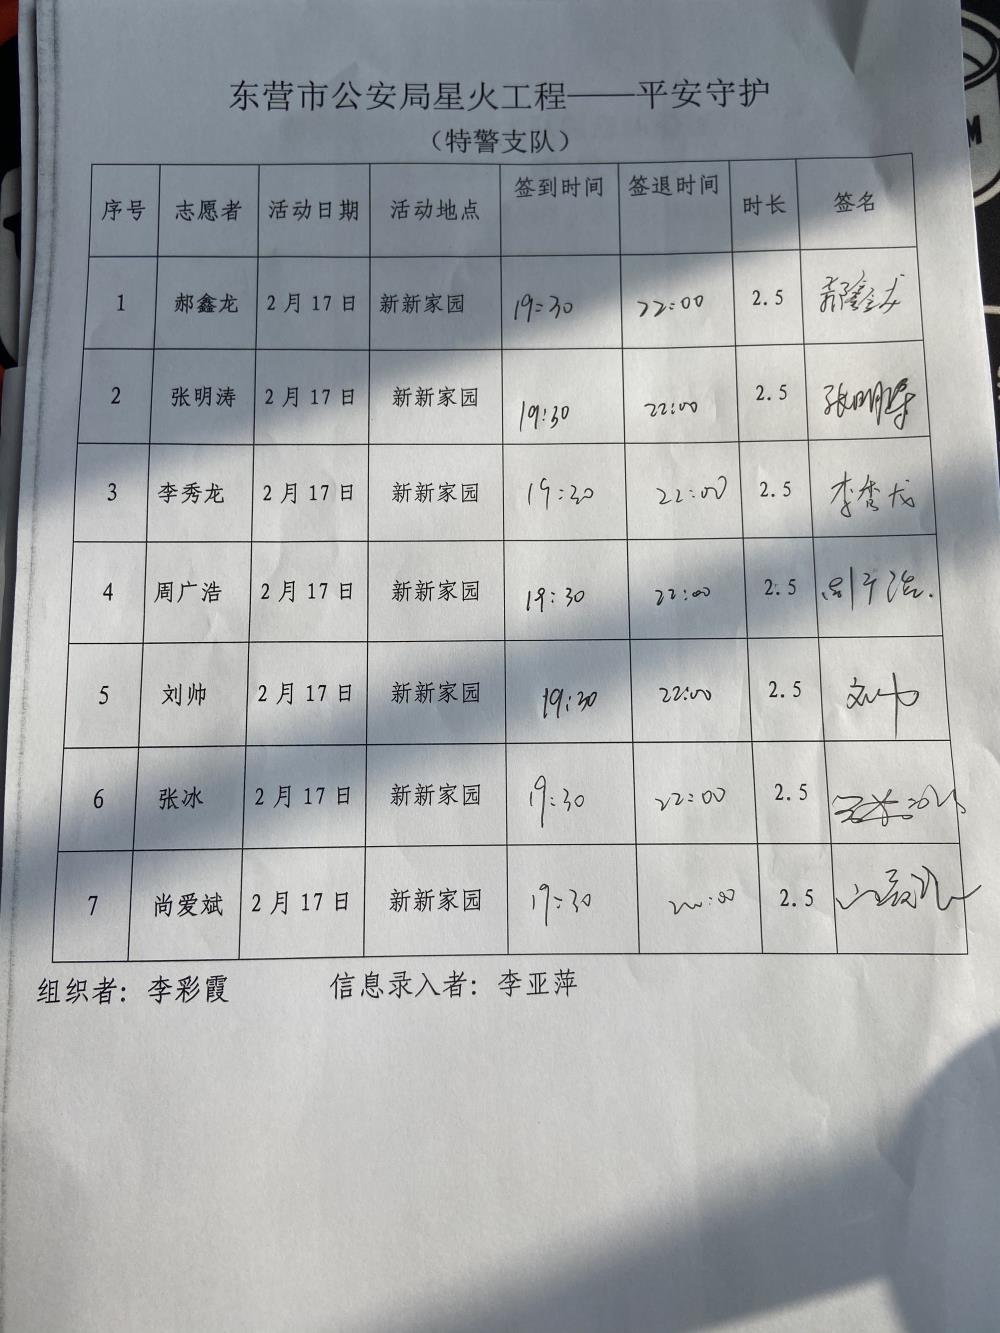 东营市公安局星火工程——平安守护
（特警支队）
序号 志愿者 活动日期 活动地点 签到时间 签退时间 时长 签名
1 郝鑫龙 2月17日 新新家园 19:30 22:00 2.5 郝鑫龙
2 张明涛 2月17日 新新家园 19:30 22:00 2.5 张明涛
3 李秀龙 2月17日 新新家园 19:30 22:00 2.5 李秀龙
4 周广浩 2月17日 新新家园 19:30 22:00 2.5 周广浩
5 刘帅 2月17日 新新家园 19:30 22:00 2.5 刘帅
6 张冰 2月17日 新新家园 19:30 22:00 2.5
7 尚爱斌 2月17日 新新家园 19:30 22:00 2.5
组织者：李彩霞 信息录入者：李亚萍